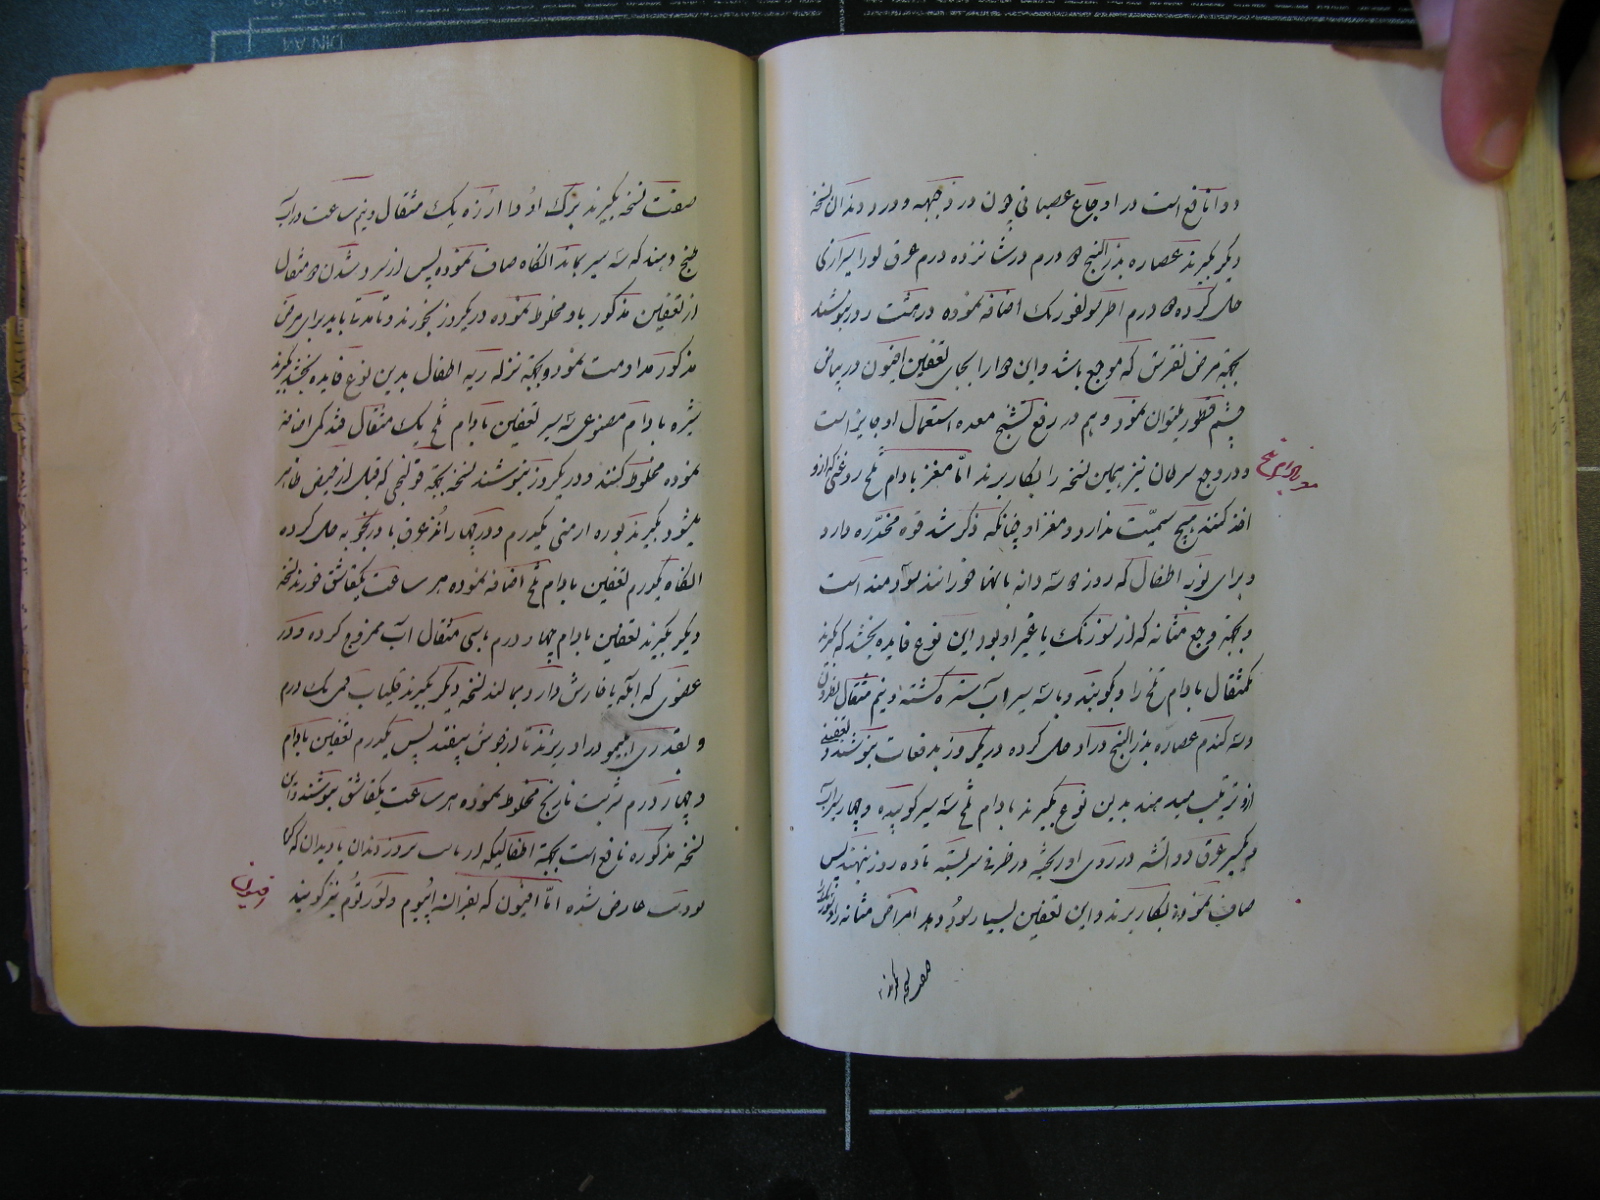 و دا نافع است در اوجاع عصبانی چون درد جبهه و درد دندان نسخه
دیکر بکیرند عصاره بذر البنج دو درم در شانزده درم عرق
حل کرده دو درم اضافه نموده در مثت روز بنوشند
بجهة مرض نقرس که موجع باشد و این دوا را بجای تعفین افیون در بیماری
چشم قطور میتوان نمود و هم در رفع تشنج معده استعمال او جایز است
و در وجع سرطان نیز همین نسخه را بکار برند امّا مغز بادام تلخ روغنی که از او
اخذ کنند هیچ سمیّت ندارد و مغز او چنانکه ذکر شد قوه مخدّره دارد
و برای نوبه اطفال که روز دو سه دانه بانها خورانند سودمند است
و بجهة وجع مثانه که از سوزنک یا غیر او بود این نوع فایده بخشد که بکیرند
یکمثقال بادام تلخ را و بکوبند و با سه سیر اب شیره کشته و نیم مثقال
و سه کندم عصاره بذر البنج در او حل کرده در یکروز بدفعات بنوشند و تعفینی
از او ترتیب میدهند بدین نوع بکیرند بادام تلخ سه سیر کوبیده و چهار سیر آب
و یکسیر عرق دو آتشه در روی او ریخته در ظرف سر بسته تا ده روز بنهند پس
صاف نموده بکار برند و این تعفین بسیار سود دهد امراض مثانه را
صفت نسخه بکیرند برک او دا ارزه یک مثقال و نیم ساعت در آب
طبخ دهند که سه سیر بماند انکاه صاف نموده پس از سرد شدن دو مثقال
از تعفین مذکور با او مخلوط نموده در یکروز بخورند و تا مدتها باید برای مرض
مذکور مداومت نمود و بجهة نزله ریه اطفال بدین نوع فایده بخشد بکیرند
شیره بادام مصنوعی سه سیر تعفین بادام تلخ یک مثقال قند کمی اضافه
نموده مخلوط کنند و در یکروز بنوشند نسخه بجهة قولنجی که قبل از حیض ظاهر
میشود بکیرند بوره ارمنی یکدرم و در چهار عرق بادرنجوبه حل کرده
انکاه یکدرم تعفین بادام تلخ اضافه نموده هر ساعت یکقاشق خورند نسخه
دیکر بکیرند تعفین بادام چهار درم با سی مثقال آب ممزوج کرده و در
عضوی که ابله یا فارش دارد بمالند نسخه دیکر بکیرند قلیاب یک درم
و بقدری ابلیمو در او بریزند تا از جوش بیفتد پس یکدرم تعفین بادام
و چهار درم شربت نارنج مخلوط نموده هر ساعت یکقاشق بنوشند و این
نسخه مذکوره نافع است بجهة اطفالیکه بروز دندان یا دیدان
عارض شده امّا افیون که بفرانسه اپیوم و نیز کویند
افیون